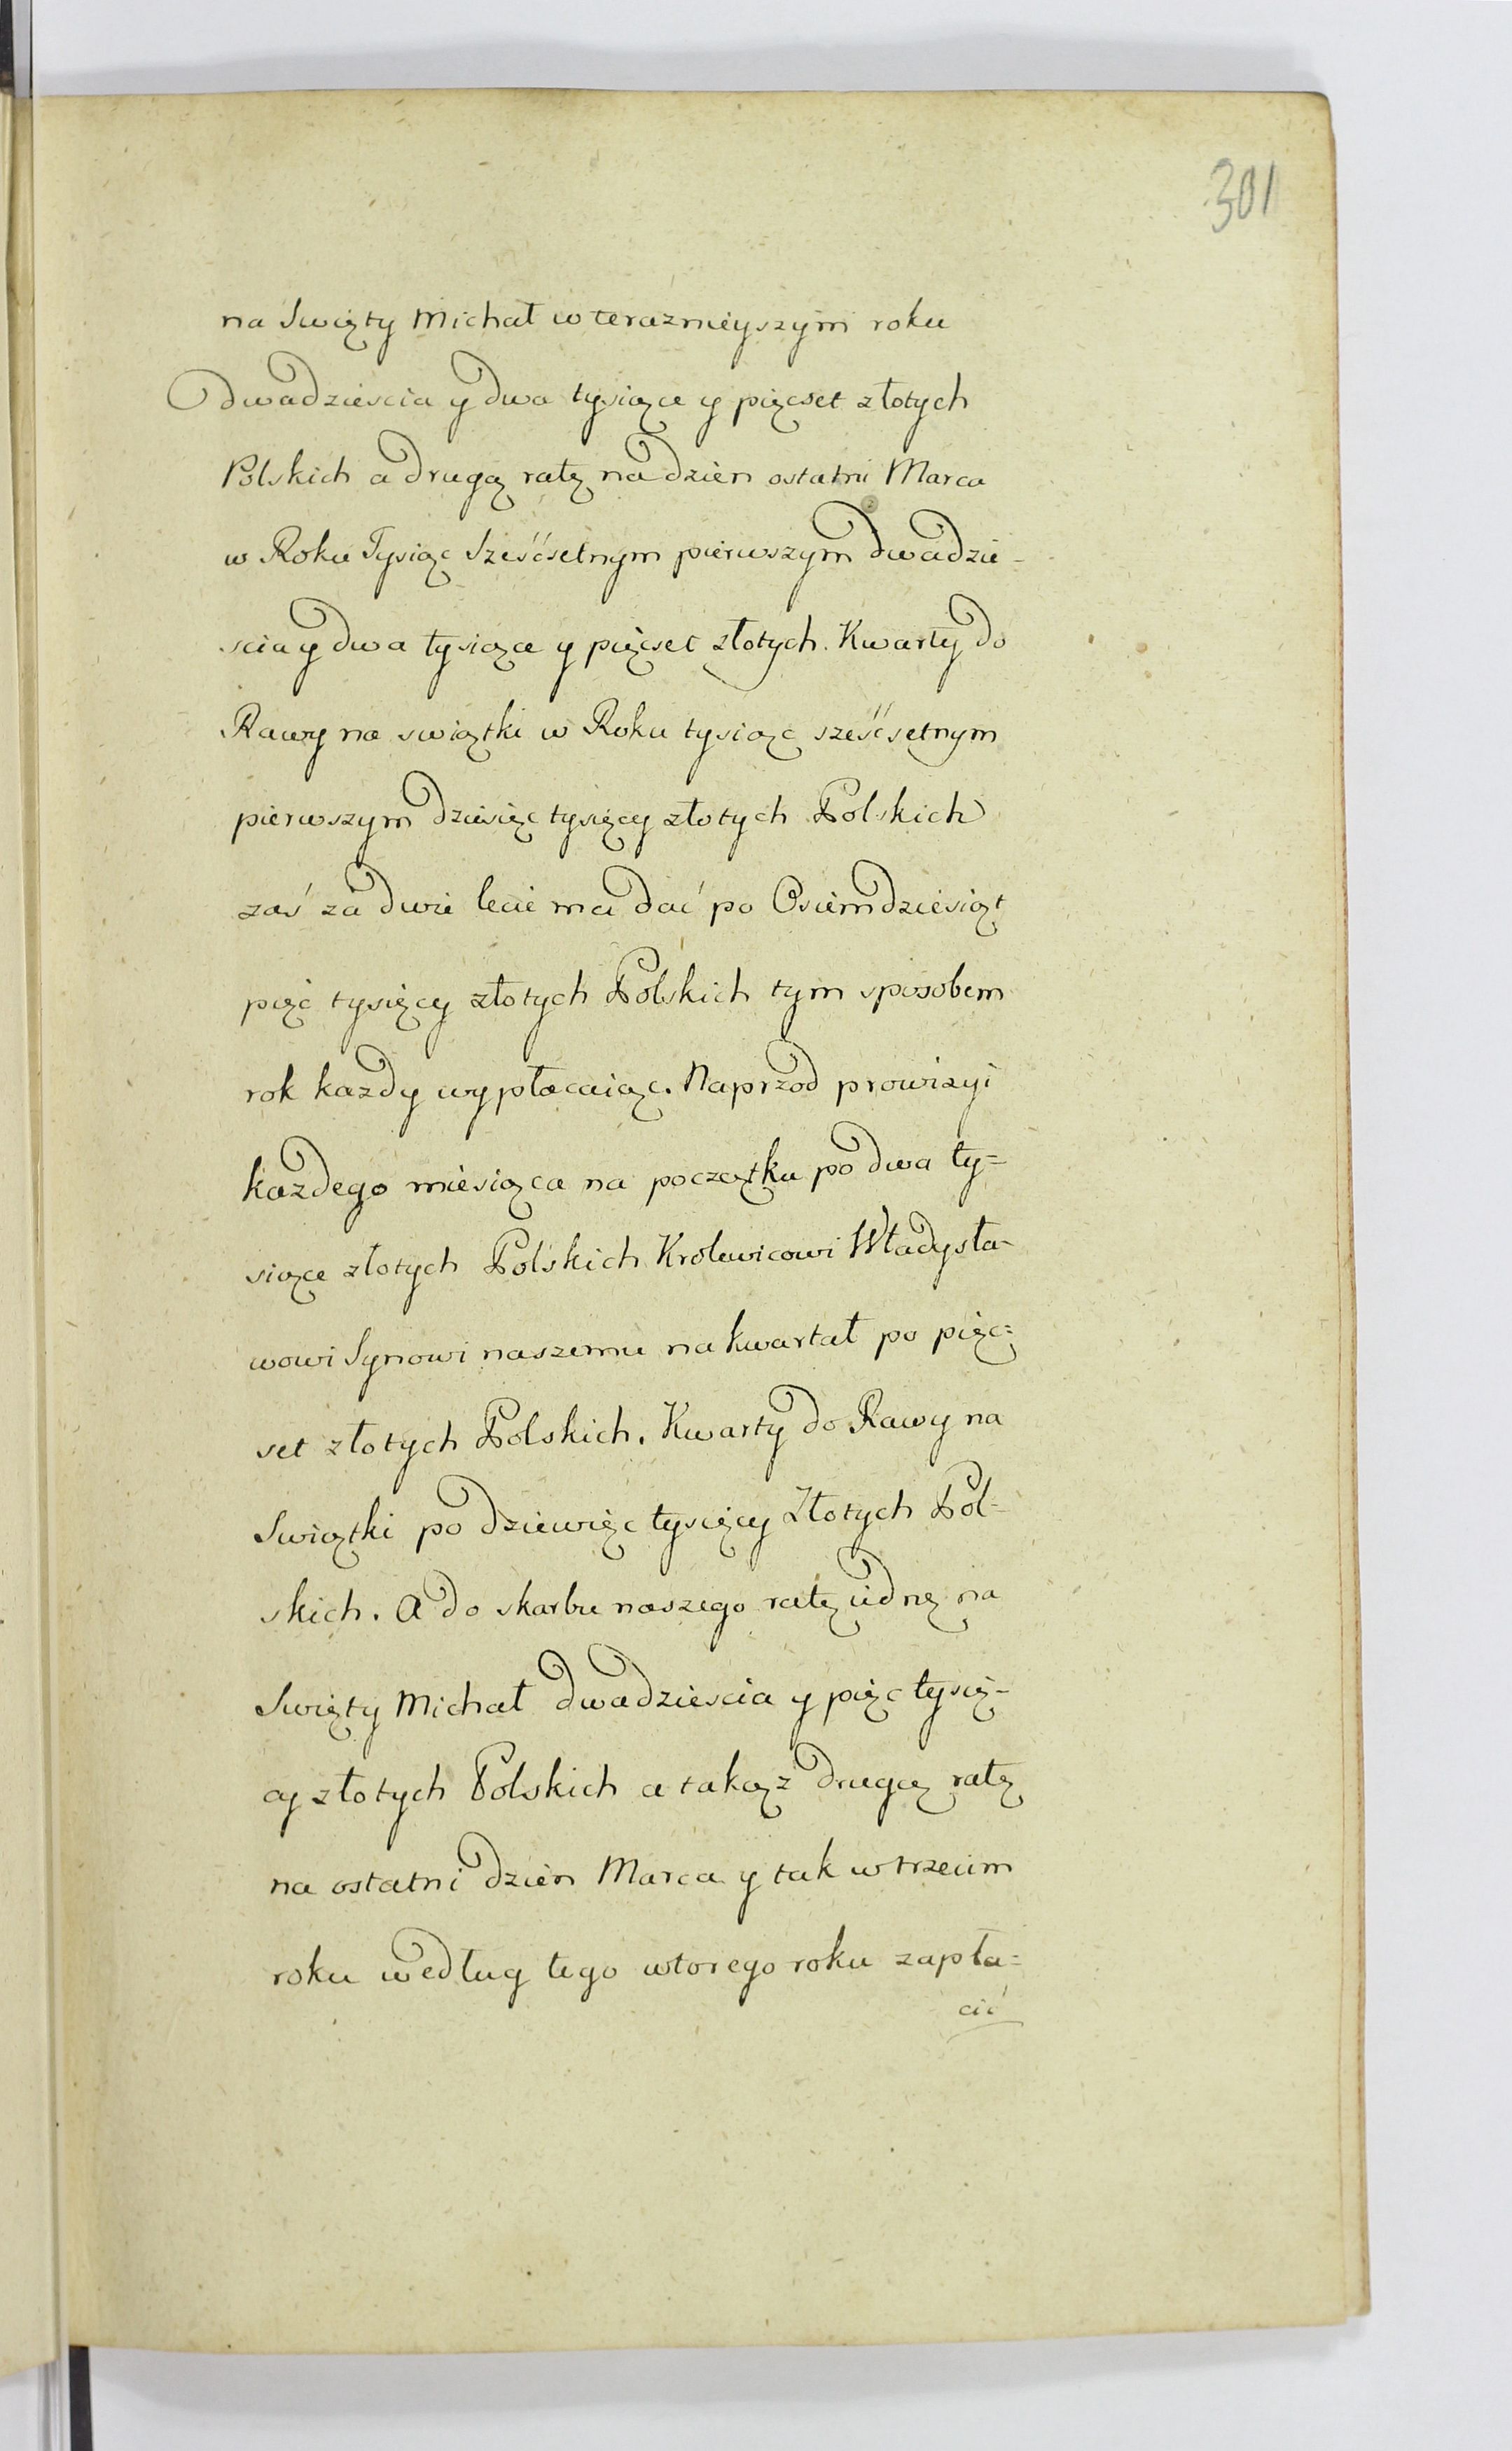 301
na Swięty Michał w terazmieyszym roku
Dwadziescia y dwa tysiące y pięcset złotych
Polskich a drugą ratę na dzien ostatni Marca
w Roku Tysiąc Sześćsetnym pierwszym dwadzie-
scia y dwa tysiące y pięcset złotych. Kwarty do
Rawy na swiątki w Roku tysiąc sześćsetnym
pierwszym dziesięc tysięcy złotych Polskich
zaś za dwie lecie ma dać po Osiemdziesiąt
pięć tysięcy złotych Polskich tym sposobem
rok kazdy wypłacaiąc. Naprzod prowizyi
kazdego miesiąca na początku po dwa ty=
siące złotych Polskich Krolewicowi Władysła-
wowi Synowi naszemu na kwartał po pięc=
set złotych Polskich. Kwarty do Rawy na
Swiątki po dziewięc tysięcy Złotych Pol-
skich. A do skarbu naszego ratę iednę na
Swięty Michał dwadziescia y pięc tysię-
cy złotych Polskich a takąz drugą ratę
na ostatni dzien Marca y tak w trzecim
roku według tego wtorego roku zapła=
cić